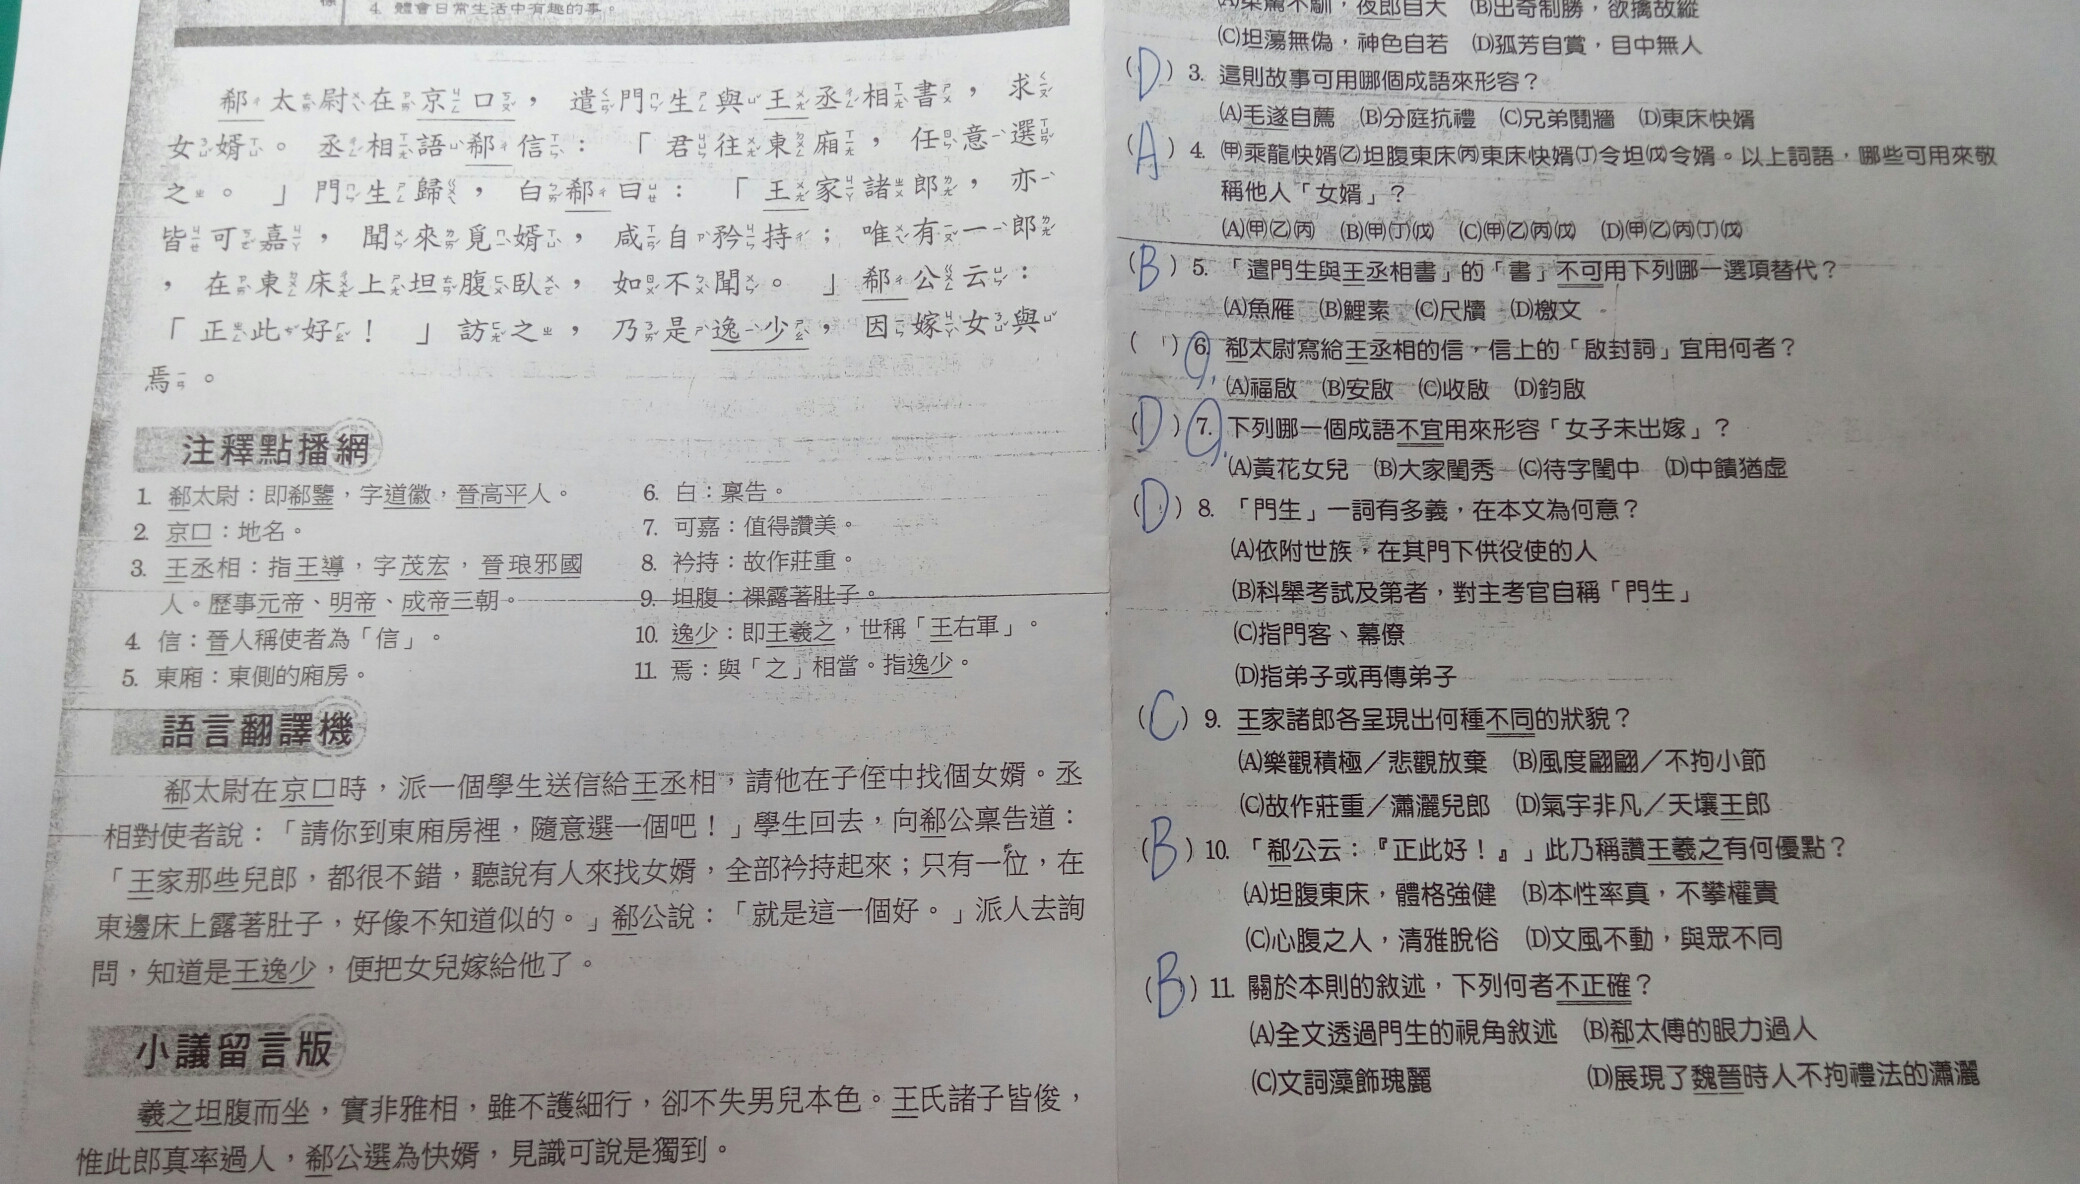 4. 體會日常生活中有趣的事。
郗太尉在京口，遣門生與王丞相書，求
女婿。丞相語郗信：「君往東廂，任意選
之。」門生歸，白郗曰：「王家諸郎，亦
皆可嘉，聞來覓婿，咸自矜持；唯有一郎
，在東床上坦腹臥，如不聞。」郗公云：
「正此好！」訪之，乃是逸少，因嫁女與
焉。
注釋點播網
1. 郗太尉：即郗鑒，字道徽，晉高平人。
2. 京口：地名。
3. 王丞相：指王導，字茂宏，晉琅邪國
人。歷事元帝、明帝、成帝三朝。
4. 信：晉人稱使者為「信」。
5. 東廂：東側的廂房。
6. 白：稟告。
7. 可嘉：值得讚美。
8. 衿持：故作莊重。
9. 坦腹：裸露著肚子。
10. 逸少：即王羲之，世稱「王右軍」。
11. 焉：與「之」相當。指逸少。
語言翻譯機
郗太尉在京口時，派一個學生送信給王丞相，請他在子侄中找個女婿。丞
相對使者說：「請你到東廂房裡，隨意選一個吧！」學生回去，向郗公稟告道：
「王家那些兒郎，都很不錯，聽說有人來找女婿，全部衿持起來；只有一位，在
東邊床上露著肚子，好像不知道似的。」郗公說：「就是這一個好。」派人去詢
問，知道是王逸少，便把女兒嫁給他了。
小議留言版
羲之坦腹而坐，實非雅相，雖不護細行，卻不失男兒本色。王氏諸子皆俊，
惟此郎真率過人，郗公選為快婿，見識可說是獨到。
(A)桀驁不馴，夜郎自大 (B)出奇制勝，欲擒故縱
(C)坦蕩無偽，神色自若 (D)孤芳自賞，目中無人
(D) 3. 這則故事可用哪個成語來形容？
(A)毛遂自薦 (B)分庭抗禮 (C)兄弟鬩牆 (D)東床快婿
(A) 4. ㈙乘龍快婿㈚坦腹東床㈛東床快婿㈜令坦㈝令婿。以上詞語，哪些可用來敬
稱他人「女婿」？
(A)㈙㈚㈛ (B)㈙㈜㈝ (C)㈙㈚㈛㈝ (D)㈙㈚㈛㈜㈝
(B) 5. 「遣門生與王丞相書」的「書」不可用下列哪一選項替代？
(A)魚雁 (B)鯉素 (C)尺牘 (D)檄文
( ) 6. 郗太尉寫給王丞相的信，信上的「啟封詞」宜用何者？
(A)福啟 (B)安啟 (C)收啟 (D)鈞啟
(D) 7. 下列哪一個成語不宜用來形容「女子未出嫁」？
(A)黃花女兒 (B)大家閨秀 (C)待字閨中 (D)中饋猶虛
(D) 8. 「門生」一詞有多義，在本文為何意？
(A)依附世族，在其門下供役使的人
(B)科舉考試及第者，對主考官自稱「門生」
(C)指門客、幕僚
(D)指弟子或再傳弟子
(C) 9. 王家諸郎各呈現出何種不同的狀貌？
(A)樂觀積極／悲觀放棄 (B)風度翩翩／不拘小節
(C)故作莊重／瀟灑兒郎 (D)氣宇非凡／天壤王郎
(B) 10. 「郗公云：『正此好！』」此乃稱讚王羲之有何優點？
(A)坦腹東床，體格強健 (B)本性率真，不攀權貴
(C)心腹之人，清雅脫俗 (D)文風不動，與眾不同
(B) 11. 關於本則的敘述，下列何者不正確？
(A)全文透過門生的視角敘述 (B)郗太傅的眼力過人
(C)文詞藻飾瑰麗 (D)展現了魏晉時人不拘禮法的瀟灑